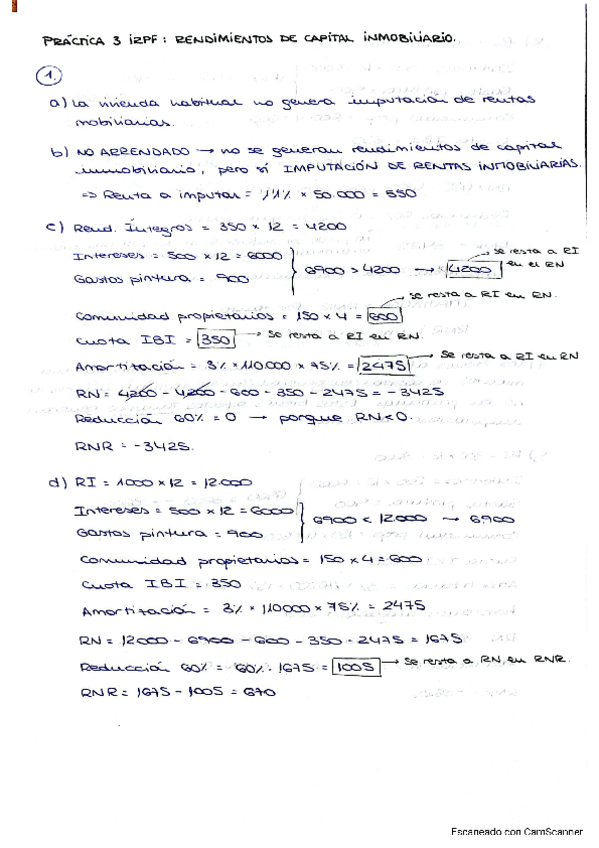 PRÁCTICA 3 IRPF: RENDIMIENTOS DE CAPITAL INMOBILIARIO.
1.
a) La vivienda habitual no genera imputación de rentas
mobiliarias.
b) NO ARRENDADO → no se generan rendimientos de capital
inmobiliario, pero sí IMPUTACIÓN DE RENTAS INMOBILIARIAS.
⇒ Renta a imputar = 1'1% × 50.000 = 550
c) Rend. Íntegros = 350 × 12 = 4200
Intereses = 500 × 12 = 6000
Gastos pintura = 900
6900 > 4200 → 4200 → se resta a RI en el RN
Comunidad propietarios = 150 × 4 = 600 → se resta a RI en RN.
Cuota IBI = 350 → se resta a RI en RN.
Amortización = 3% × 110.000 × 75% = 2475 → se resta a RI en RN
RN = 4200 - 4200 - 600 - 350 - 2475 = -3425
Reducción 60% = 0 → porque RN<0.
RNR = -3425.
d) RI = 1000 × 12 = 12.000
Intereses = 500 × 12 = 6000
Gastos pintura = 900
6900 < 12000 → 6900
Comunidad propietarios = 150 × 4 = 600
Cuota IBI = 350
Amortización = 3% × 110000 × 75% = 2475
RN = 12000 - 6900 - 600 - 350 - 2475 = 1675
Reducción 60% = 60% · 1675 = 1005 → se resta a RN, en RNR.
RNR = 1675 - 1005 = 670
Escaneado con CamScanner